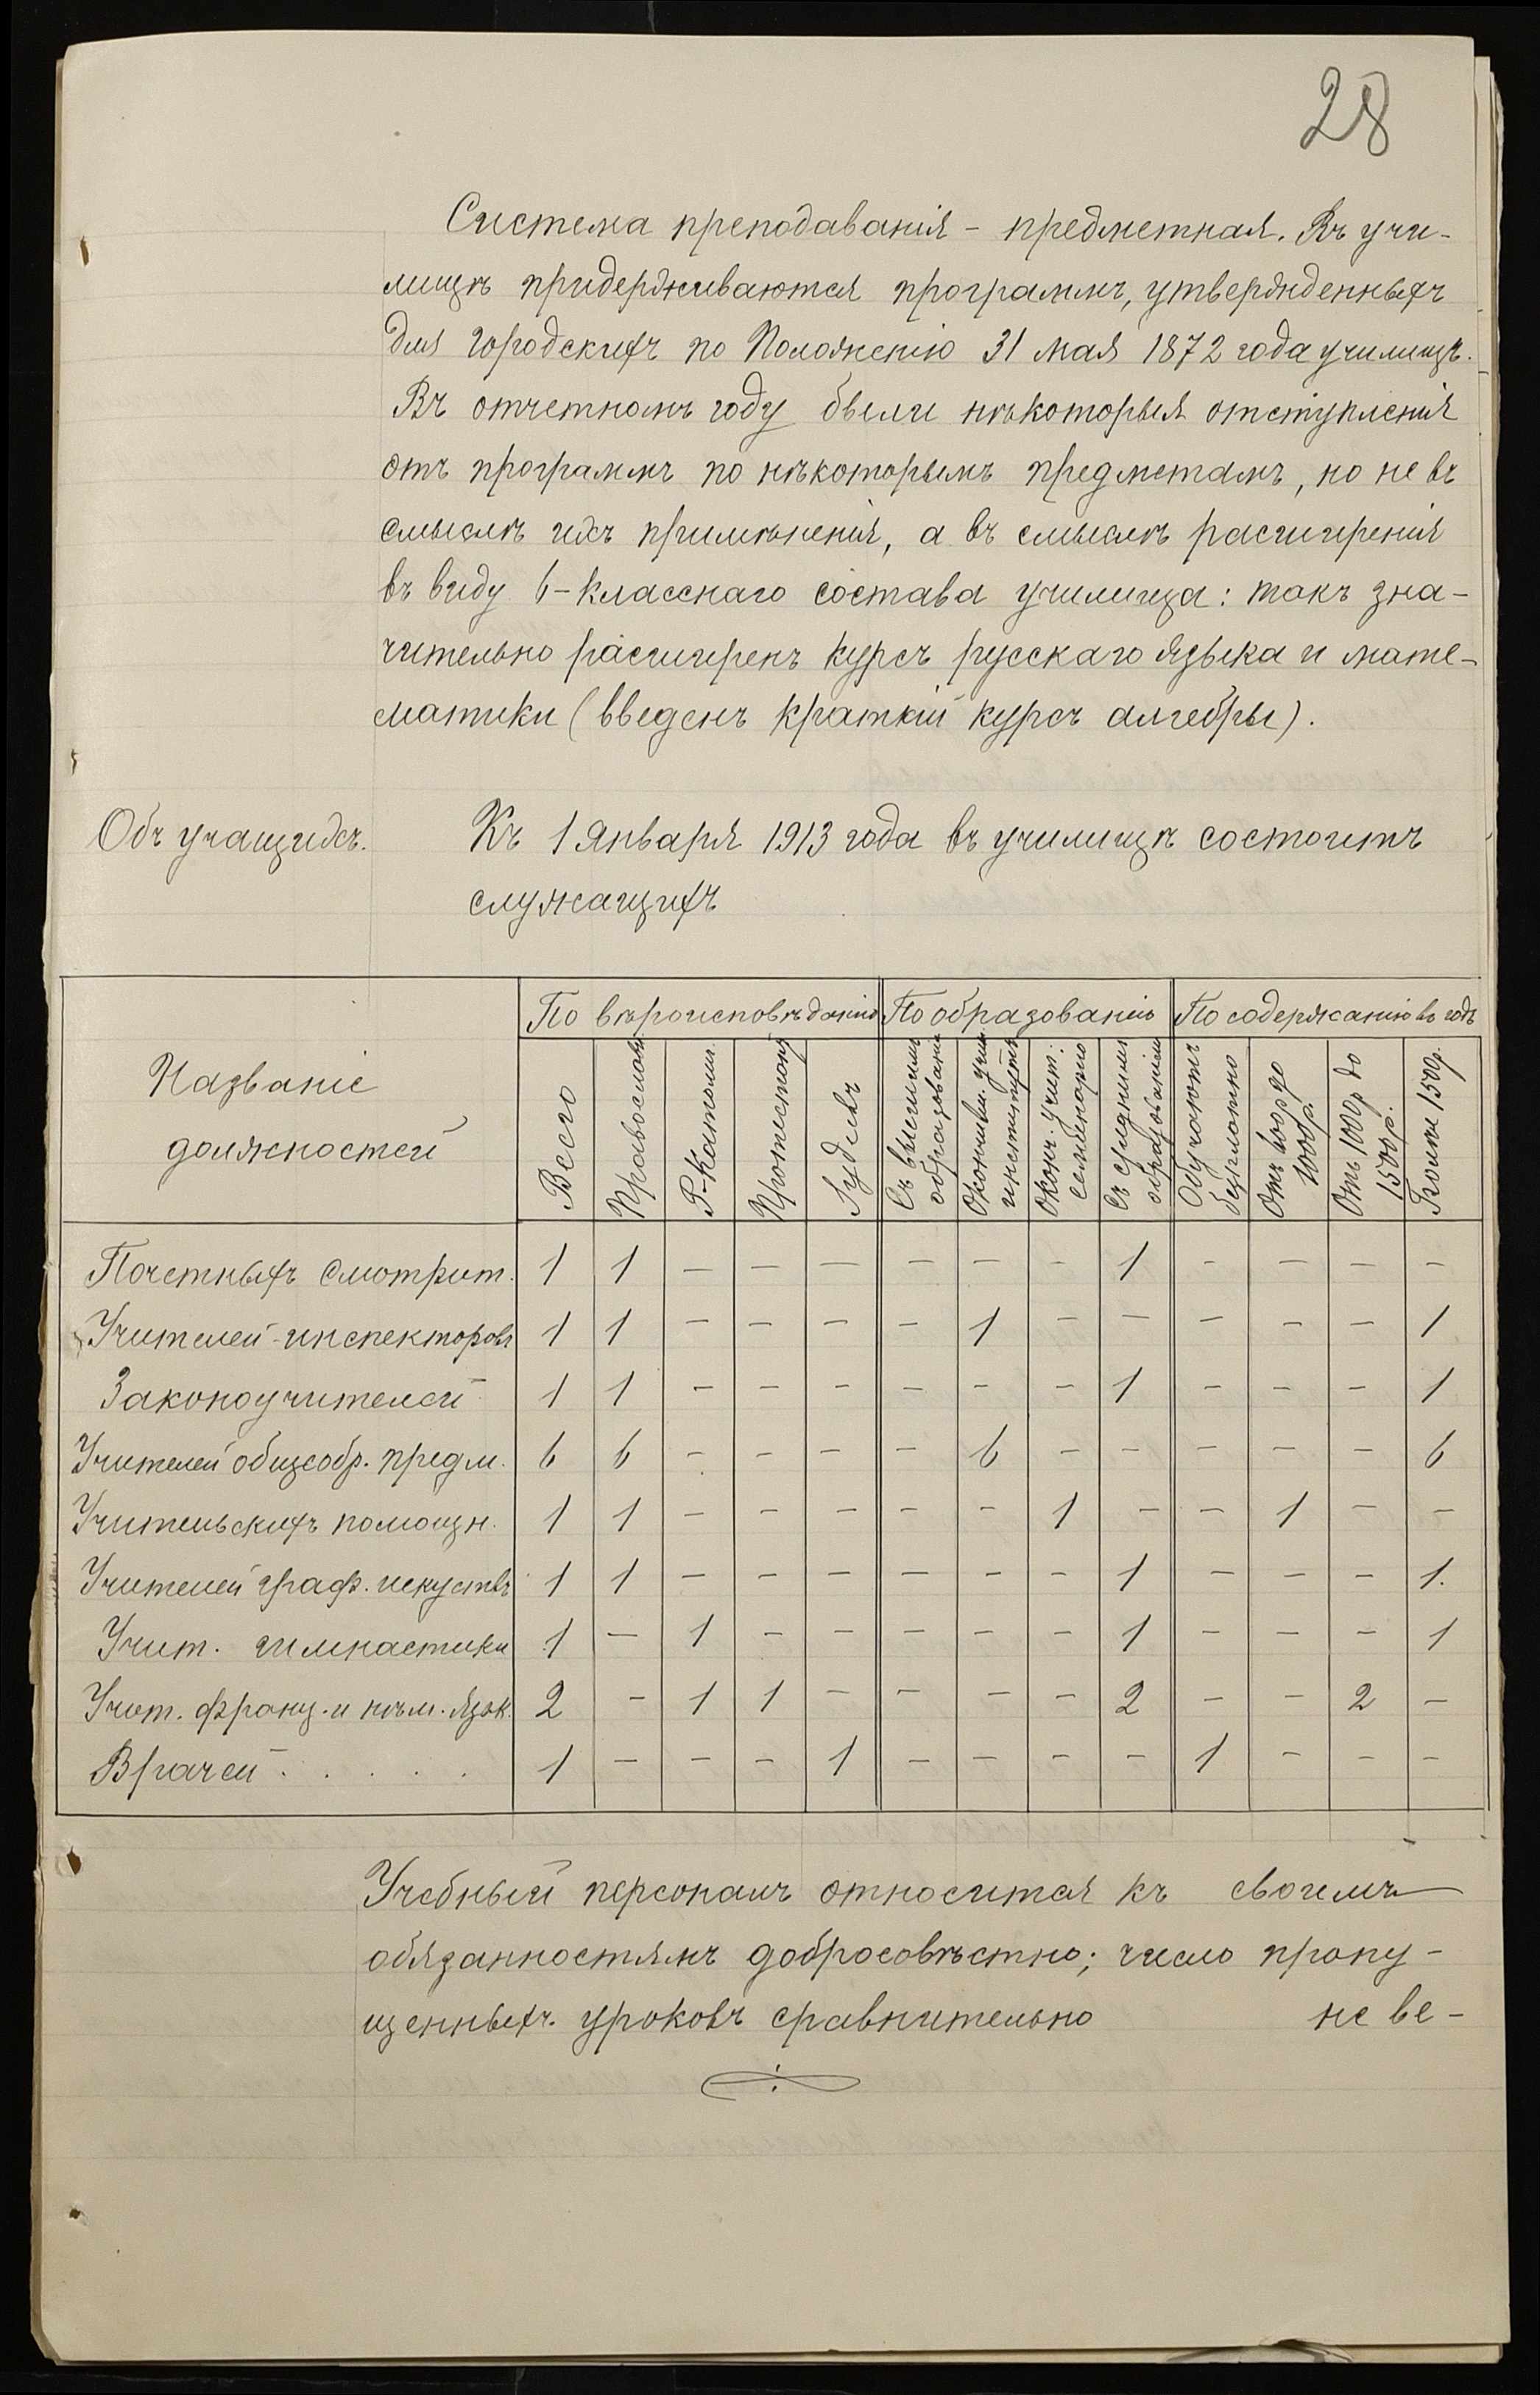 28
Система преподаванія - предметная. Въ учи-
лищѣ придерживаются программъ, утвержденныхъ
для городскихъ по Положенію 31 мая 1872 года училищъ.
Въ отчетномъ году были нѣкоторыя отступленія
отъ программъ по нѣкоторымъ предметамъ, но не въ
смыслѣ ихъ примѣненія, а въ смыслѣ расширенія
въ виду 6-класснаго состава училища: такъ зна-
чительно расширенъ курсъ русскаго языка и мате-
матики (введенъ краткій курсъ алгебры).
Объ учащихъ.
Къ 1 Января 1913 года въ училищѣ состоитъ
служащихъ
Названіе должностей | По вѣроисповѣданію | По образованію | По содержанію въ годъ
Всего | Православн | Р.-Катол. | Протестант | Іудеевъ | Съ высшимъ образовані | Окончивш. учит. институтъ | Оконч. учит. семинарію | Съ среднимъ образованіем | Обучаютъ безплатно | Отъ 600р до 1000р. | Отъ 1000р до 1500р. | Болѣе 1500р.
Почетныхъ смотрит. | 1 | 1 | — | — | — | — | — | - | 1 | - | — | — | —
Учителей-инспекторовъ | 1 | 1 | — | — | — | — | 1 | — | — | — | — | — | 1
Законоучителей | 1 | 1 | — | — | — | — | — | — | 1 | — | — | — | 1
Учителей общеобр. предм. | 6 | 6 | — | — | — | — | 6 | — | — | — | — | — | 6
Учительскихъ помощн. | 1 | 1 | — | — | — | — | — | 1 | — | — | 1 | — | —
Учителей граф. искуствъ | 1 | 1 | — | — | — | — | — | — | 1 | — | — | — | 1.
Учит. гимнастики | 1 | — | 1 | — | — | — | — | — | 1 | — | — | — | 1
Учит. франц. и нѣм. язык. | 2 | — | 1 | 1 | — | — | — | — | 2 | — | — | 2 | —
Врачей . . . . . | 1 | — | — | — | 1 | — | — | — | — | 1 | — | — | —
Учебный персоналъ относится къ своимъ
обязанностямъ добросовѣстно; число пропу-
щенныхъ уроковъ сравнительно не ве-